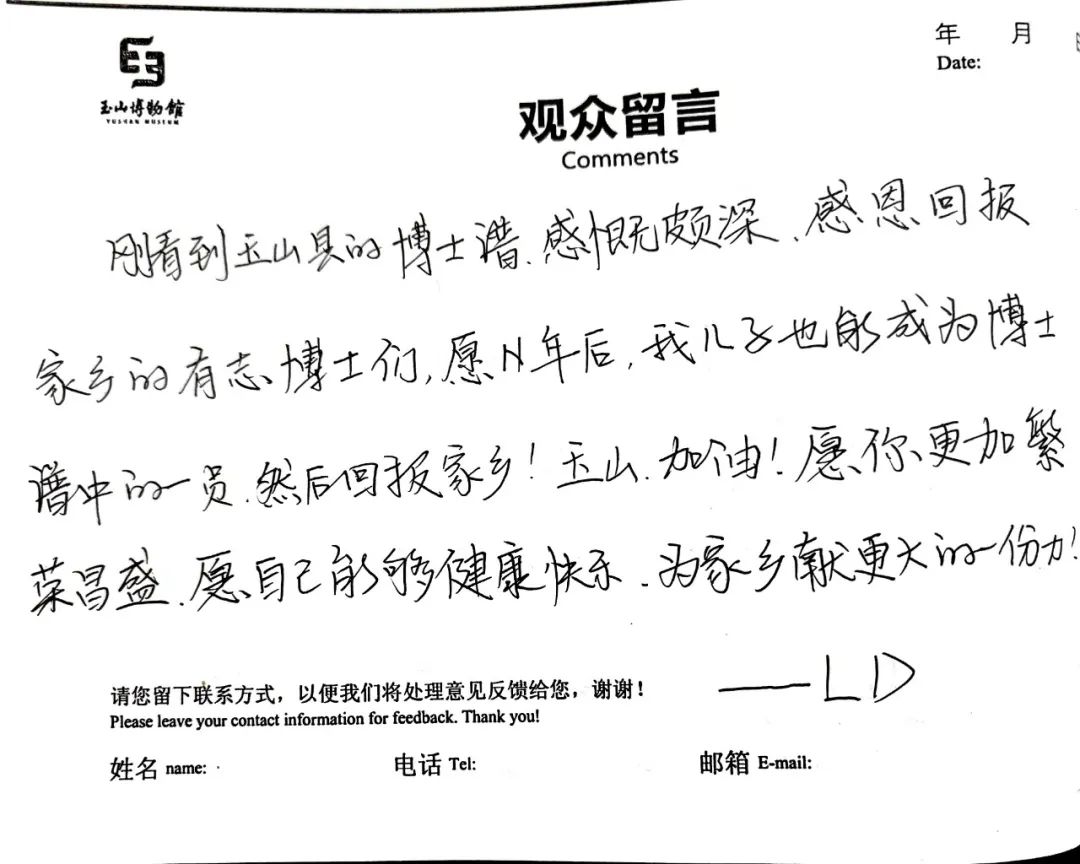 年 月
Date:
玉山博物館
YUSHAN MUSEUM
观众留言
Comments
刚看到玉山县的博士谱,感慨颇深、感恩回报
家乡的有志博士们,愿N年后,我儿子也能成为博士
谱中的一员,然后回报家乡!玉山,加油!愿你更加繁
荣昌盛,愿自己能够健康快乐、为家乡献更大的一份力!
——LD
请您留下联系方式,以便我们将处理意见反馈给您,谢谢!
Please leave your contact information for feedback. Thank you!
姓名 name: 电话 Tel: 邮箱 E-mail: